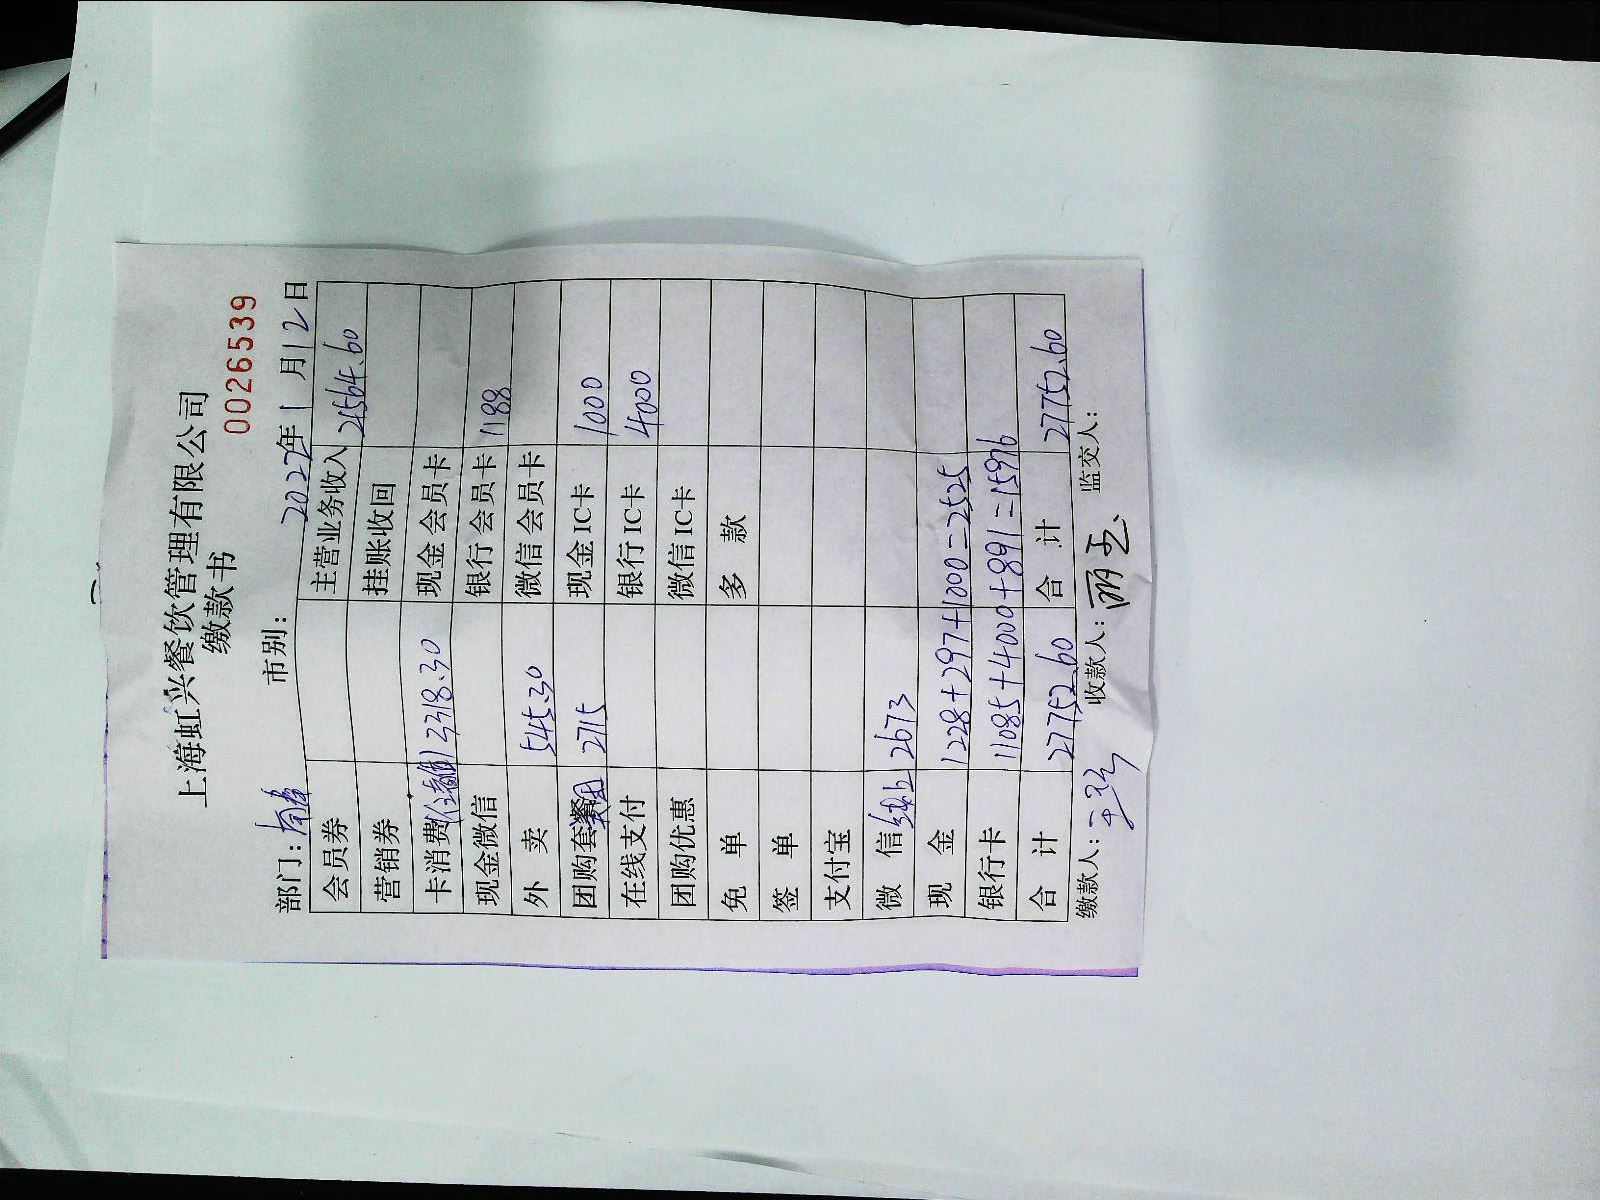 上海虹兴餐饮管理有限公司
缴款书
0026539
部门： 市别： 2022年1月12日
会员券 主营业务收入 21564.60
营销券 挂账收回
卡消费 3318.30 现金会员卡
现金微信 银行会员卡 1188
外卖 545.30 微信会员卡
团购套餐 2715 现金IC卡 1000
在线支付 银行IC卡 4000
团购优惠 微信IC卡
免单 多款
签单
支付宝
微信 线上 2673
现金 1228+297+1000=2525
银行卡 11085+4000+891=15976
合计 27752.60 合计 27752.60
缴款人： 收款人： 监交人：